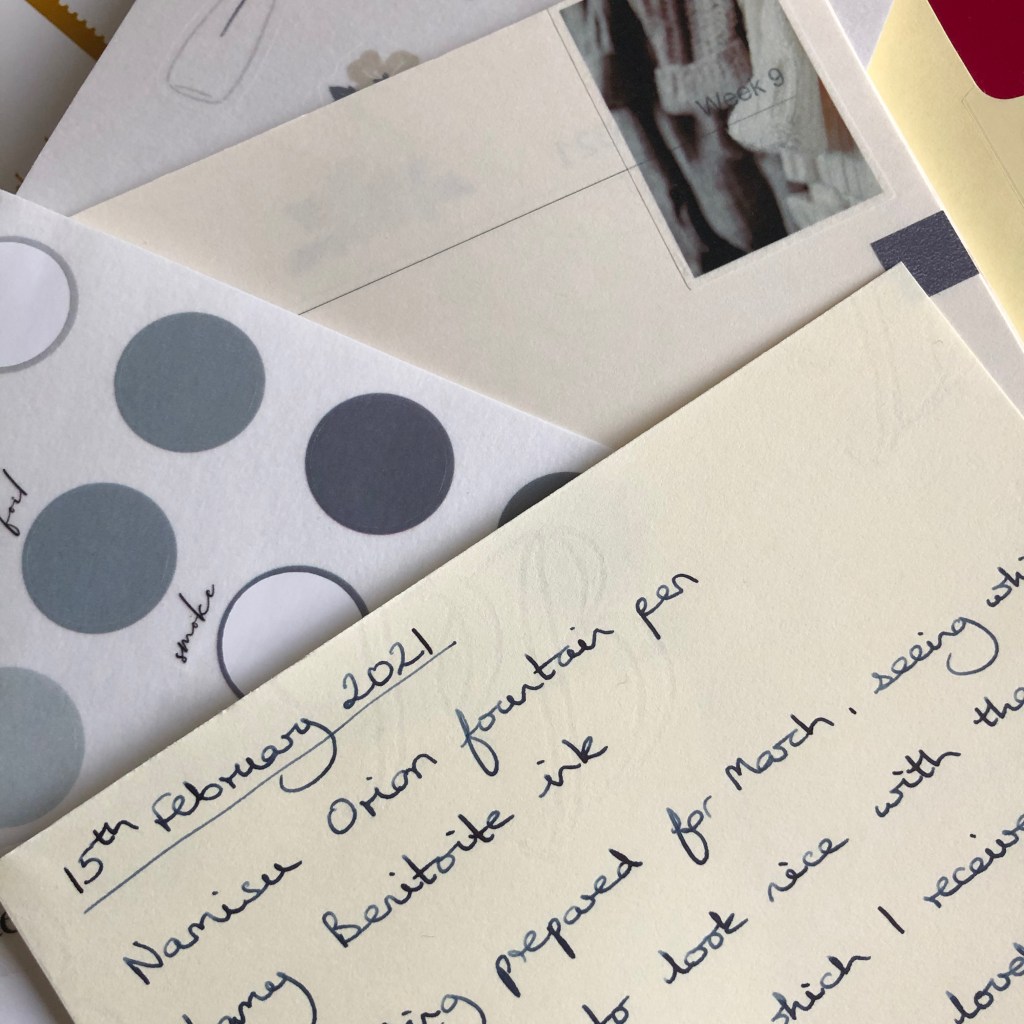 Week 9
foil
smoke
15th February 2021
Namisu Orion fountain pen
Benitoite ink
prepared for March, seeing
to look nice with the
which I
loved